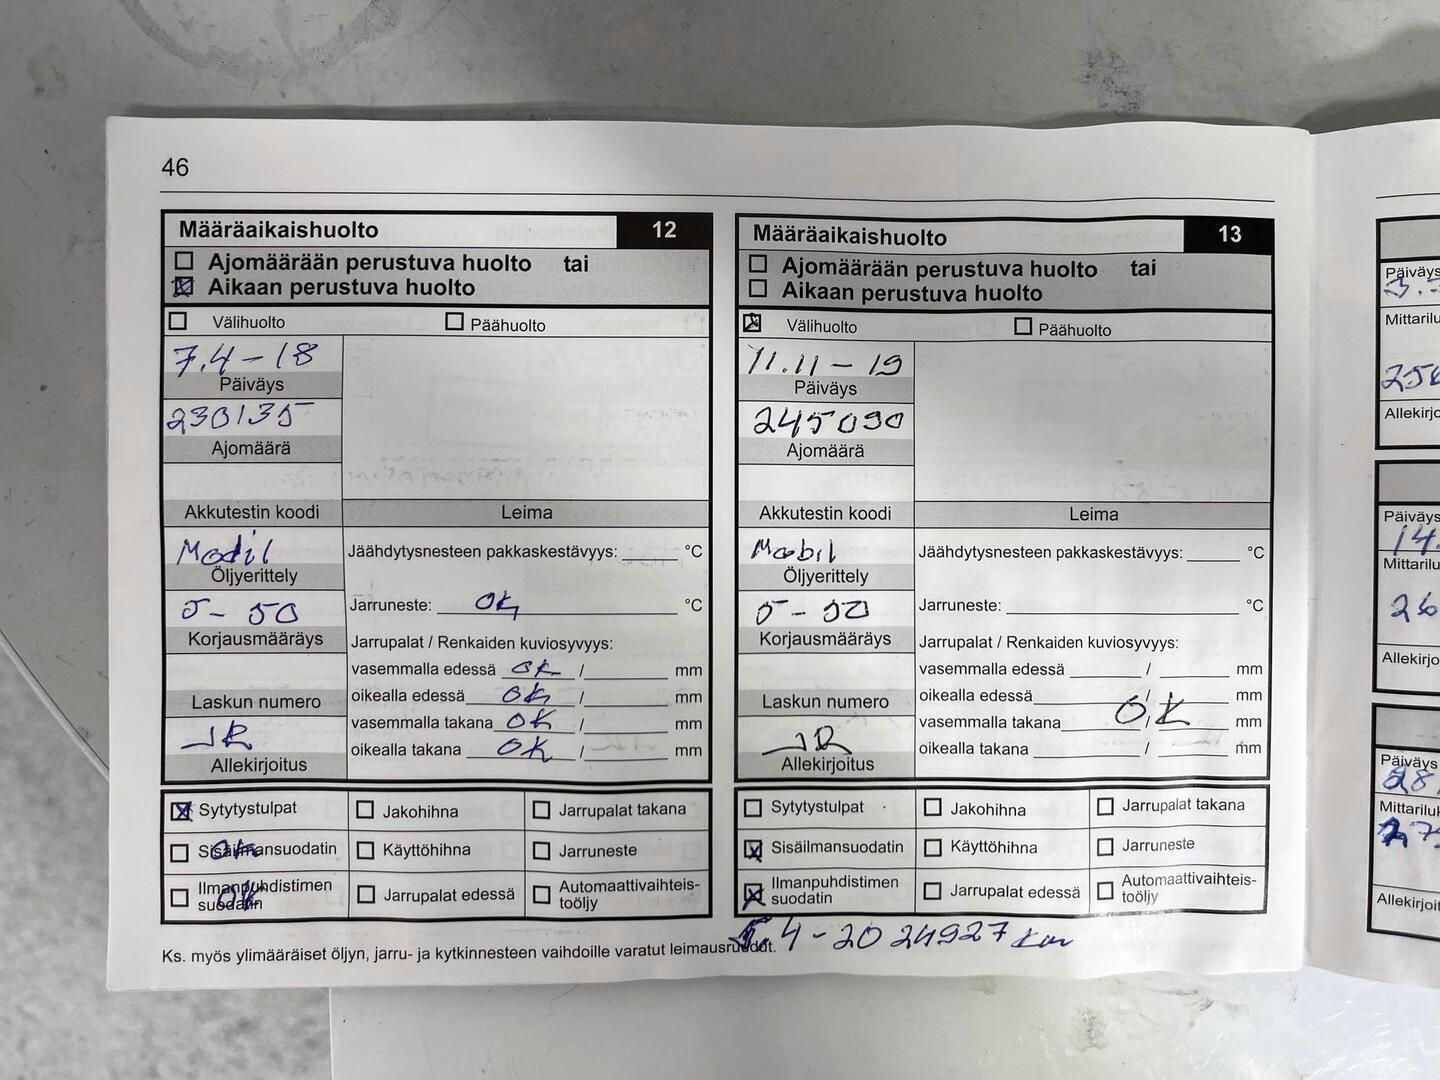 46
Määräaikaishuolto 12
Ajomäärään perustuva huolto tai
Aikaan perustuva huolto
Välihuolto Päähuolto
7.4-18
Päiväys
230135
Ajomäärä
Akkutestin koodi
Leima
Modil
Öljyerittely
5-50
Korjausmääräys
Laskun numero
JR
Allekirjoitus
Jäähdytysnesteen pakkaskestävyys: °C
Jarruneste: OK °C
Jarrupalat / Renkaiden kuviosyvyys:
vasemmalla edessä OK / mm
oikealla edessä OK / mm
vasemmalla takana OK / mm
oikealla takana OK / mm
Sytytystulpat Jakohihna Jarrupalat takana
Sisäilmansuodatin OK Käyttöhihna Jarruneste
Ilmanpuhdistimen suodatin OK Jarrupalat edessä Automaattivaihteis-
toöljy
Määräaikaishuolto 13
Ajomäärään perustuva huolto tai
Aikaan perustuva huolto
Välihuolto Päähuolto
11.11-19
Päiväys
245090
Ajomäärä
Akkutestin koodi
Leima
Mobil
Öljyerittely
5-50
Korjausmääräys
Laskun numero
JR
Allekirjoitus
Jäähdytysnesteen pakkaskestävyys: °C
Jarruneste: °C
Jarrupalat / Renkaiden kuviosyvyys:
vasemmalla edessä / mm
oikealla edessä / mm
vasemmalla takana OK / mm
oikealla takana / mm
Sytytystulpat Jakohihna Jarrupalat takana
Sisäilmansuodatin Käyttöhihna Jarruneste
Ilmanpuhdistimen suodatin Jarrupalat edessä Automaattivaihteis-
toöljy
4-20 24927 km
Ks. myös ylimääräiset öljyn, jarru- ja kytkinnesteen vaihdoille varatut leimausruudut.
Päiväys
Allekirjo
Päiväys
14.
26
Allekirjo
Päiväys
28
Allekirjoit